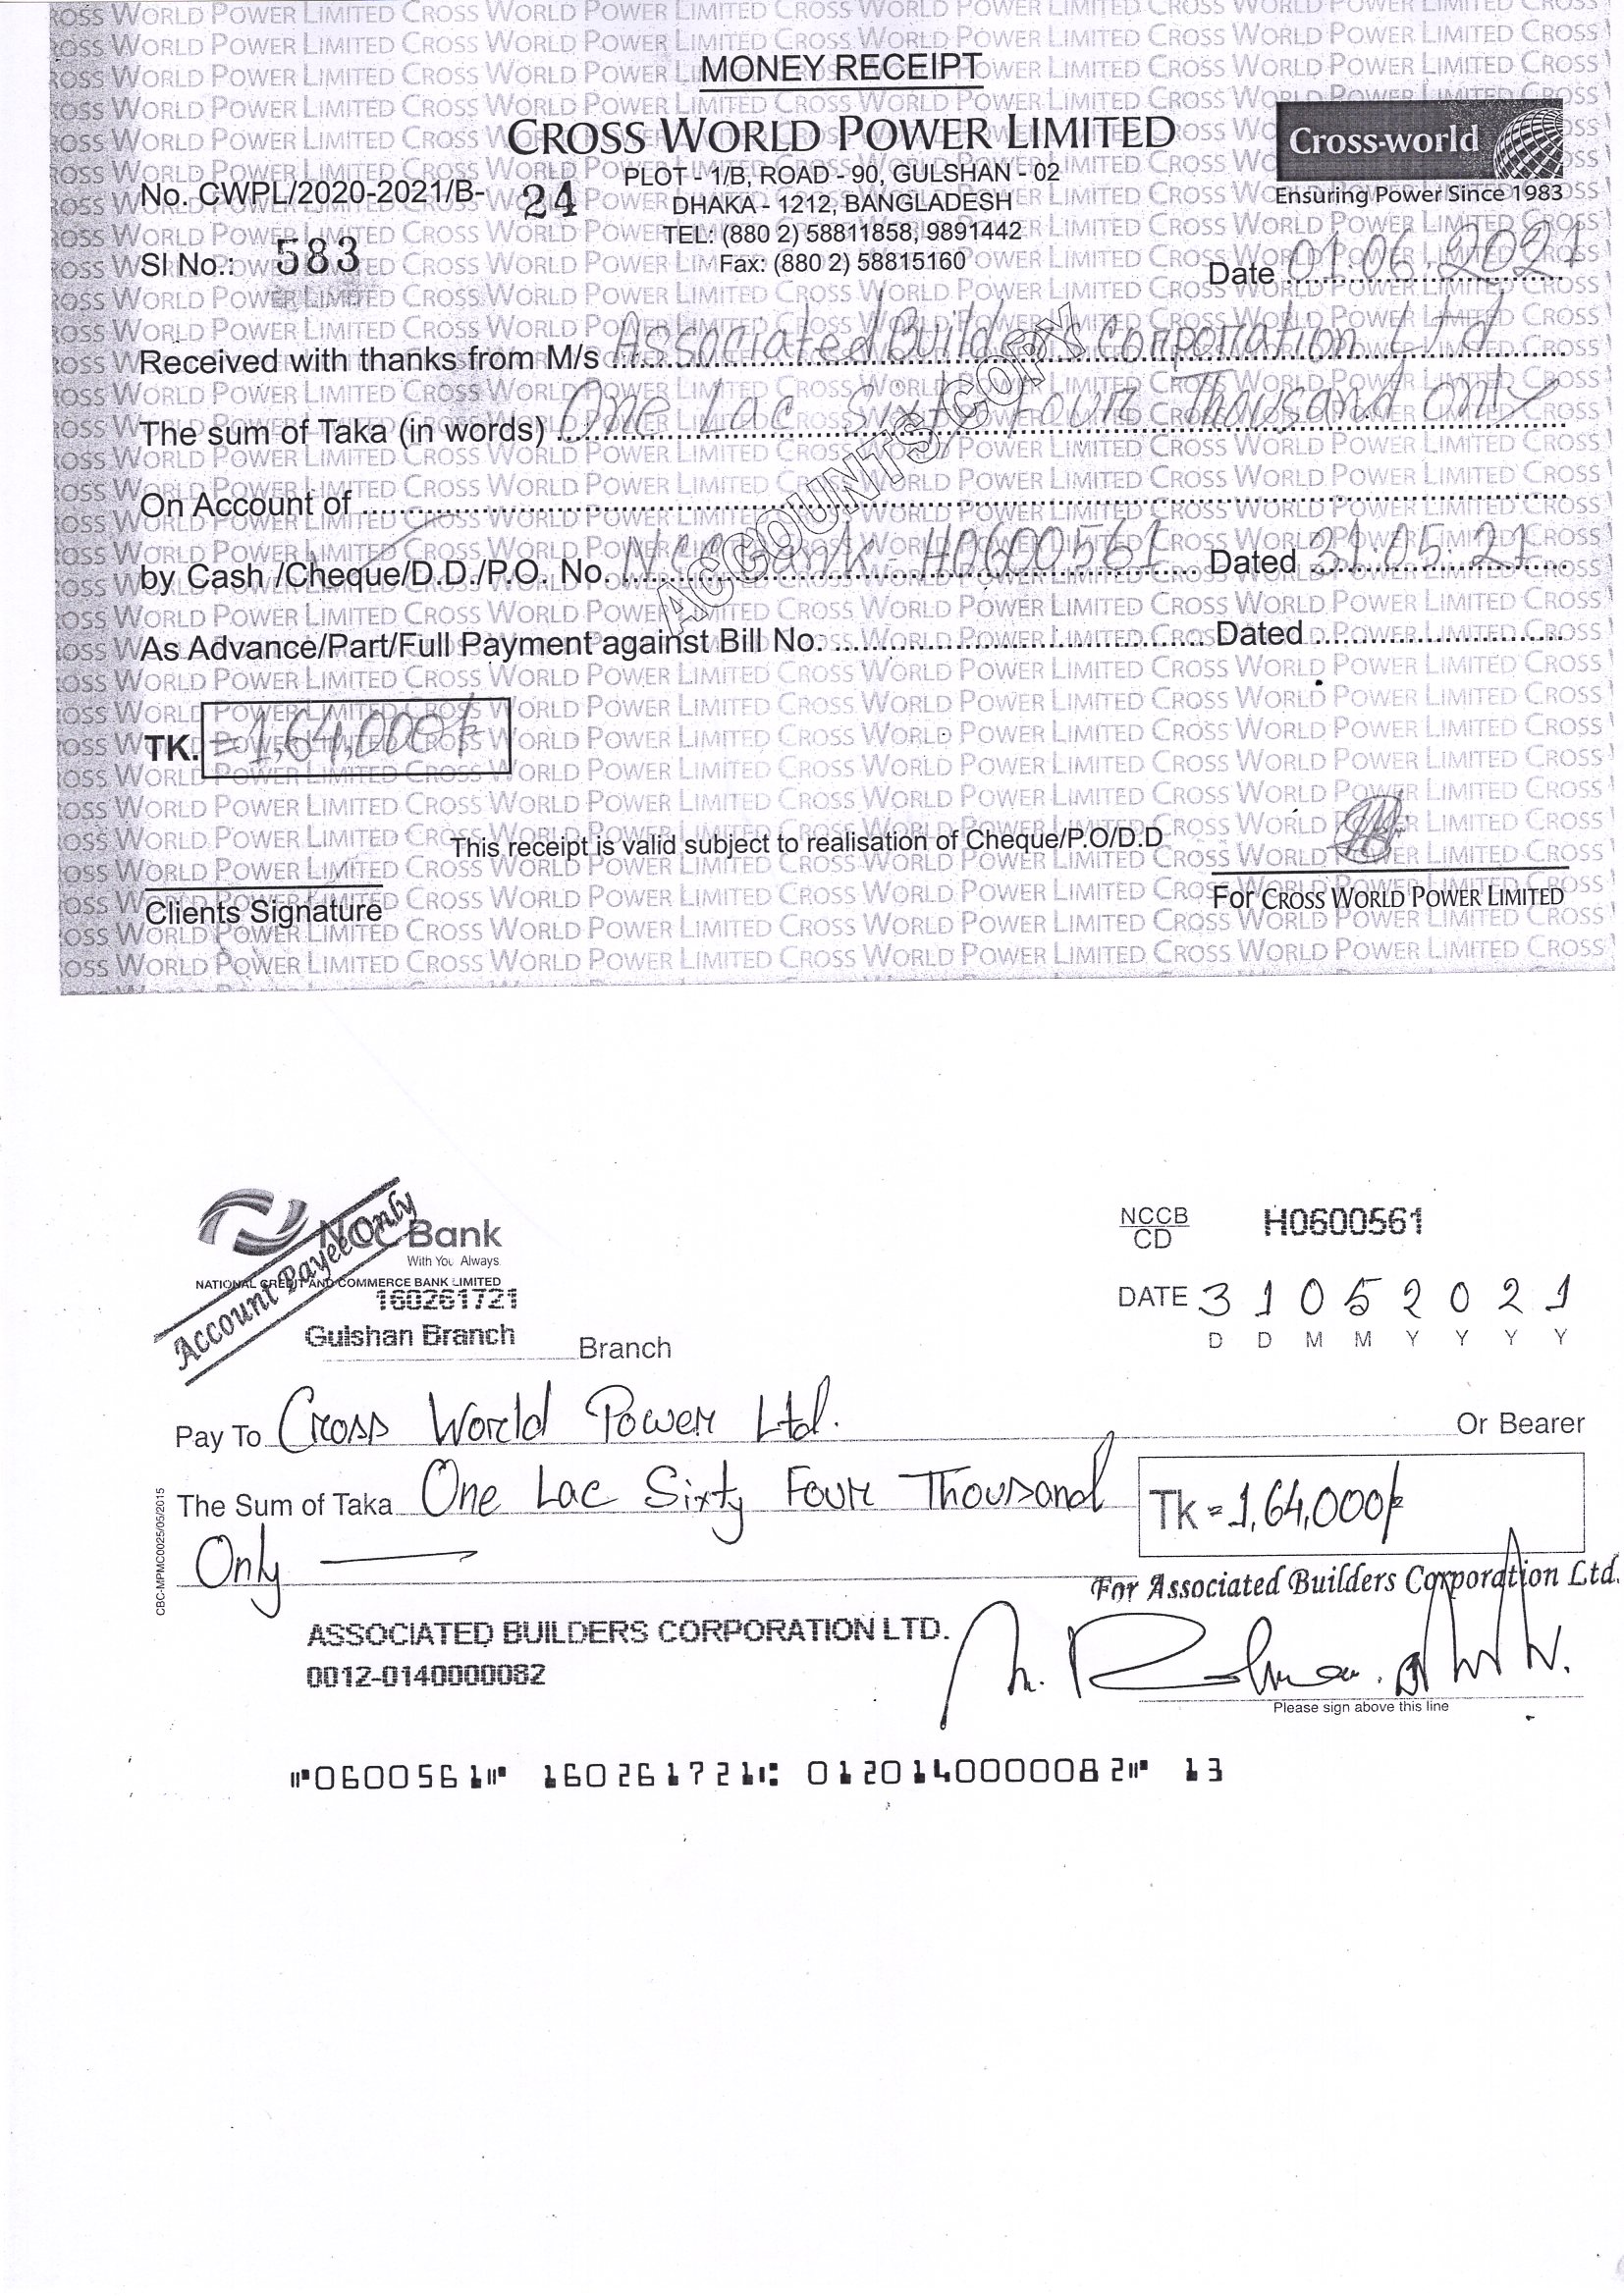 MONEY RECEIPT
CROSS WORLD POWER LIMITED
Cross-world
Ensuring Power Since 1983
PLOT - 1/B, ROAD - 90, GULSHAN - 02
No. CWPL/2020-2021/B- 24
DHAKA - 1212, BANGLADESH
TEL: (880 2) 58811858, 9891442
Sl No.: 583
Fax: (880 2) 58815160
Date 01.06.2021
Received with thanks from M/s Associated Builders Corporation Ltd
The sum of Taka (in words) One Lac Sixty Four Thousand only
On Account of
by Cash /Cheque/D.D./P.O. No. NCC Bank. H0600561 Dated 31.05.21
As Advance/Part/Full Payment against Bill No. Dated
ACCOUNTS COPY
TK. =1,64,000/-
This receipt is valid subject to realisation of Cheque/P.O/D.D
Clients Signature
For CROSS WORLD POWER LIMITED
NCC Bank
With You Always
NATIONAL CREDIT AND COMMERCE BANK LIMITED
Account Payee Only
160261721
Gulshan Branch Branch
NCCB
CD
H0600561
DATE 3 1 0 5 2 0 2 1
D D M M Y Y Y Y
Pay To Cross World Power Ltd. Or Bearer
The Sum of Taka One Lac Sixty Four Thousand
Only
Tk =1,64,000/-
CBC-MPMC0025/05/2015
For Associated Builders Corporation Ltd.
ASSOCIATED BUILDERS CORPORATION LTD.
0012-0140000082
Please sign above this line
⑈0600561⑈ 160261721⑆ 0120140000082⑈ 13